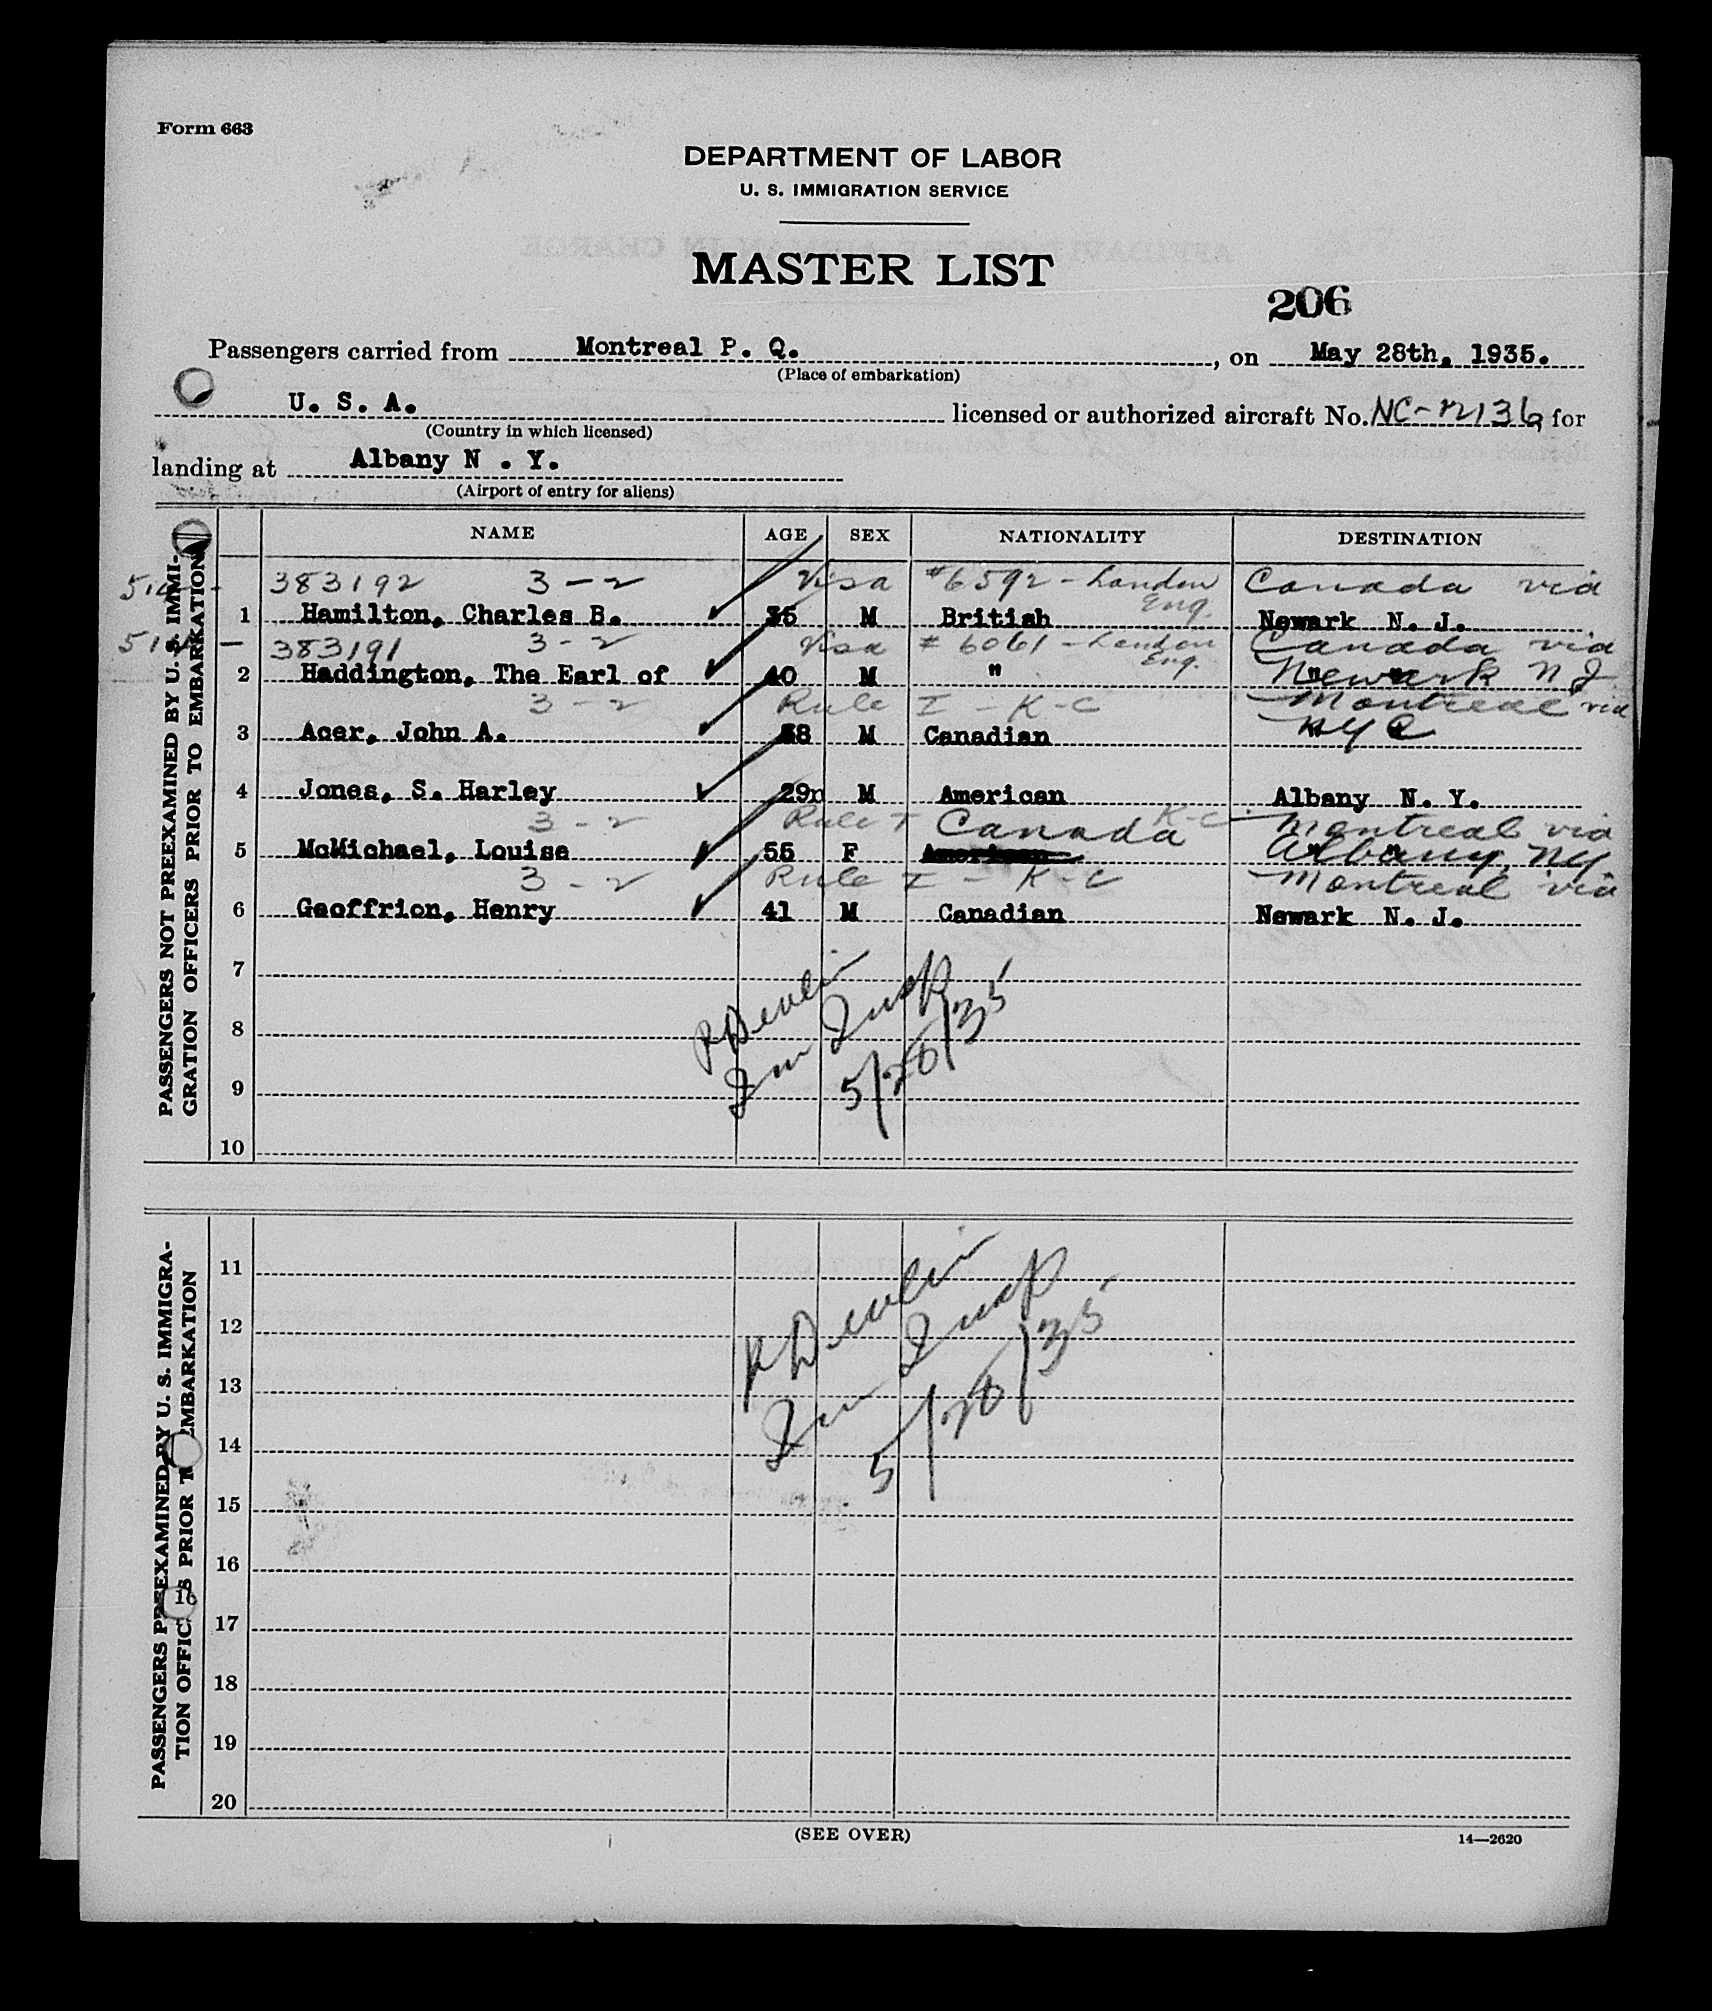 Form 663
DEPARTMENT OF LABOR
U. S. IMMIGRATION SERVICE
MASTER LIST
206
Passengers carried from Montreal P. Q. , on May 28th, 1935.
(Place of embarkation)
U. S. A. licensed or authorized aircraft No. for
(Country in which licensed)
landing at Albany N . Y.
(Airport of entry for aliens)
NAME AGE SEX NATIONALITY DESTINATION
383192 3-2 Visa #6592 - London Eng. Canada via
1 Hamilton, Charles B. 35 M British Newark N. J.
383191 3-2 Visa # 6061 - London Eng. Canada via
2 Haddington, The Earl of 40 M " Newark N J
3-2 Rule I - K-C Montreal via
3 Acer, John A. 38 M Canadian N Y C
4 Jones, S. Harley 29n M American Albany N. Y.
3-2 Rule I K-C Montreal via
Canada
5 McMichael, Louise 55 F American Albany, NY
3-2 Rule I - K-C Montreal via
6 Geoffrion, Henry 41 M Canadian Newark N. J.
7
8
9
10
R Devlin
Imm Insp
5/28/35
PASSENGERS NOT PREEXAMINED BY U. S. IMMI-
GRATION OFFICERS PRIOR TO EMBARKATION
11
12
13
14
15
16
17
18
19
20
R Devlin
Imm Insp
5/28/35
PASSENGERS PREEXAMINED BY U. S. IMMIGRA-
TION OFFIC S PRIOR T EMBARKATION
16
(SEE OVER)
14—2620